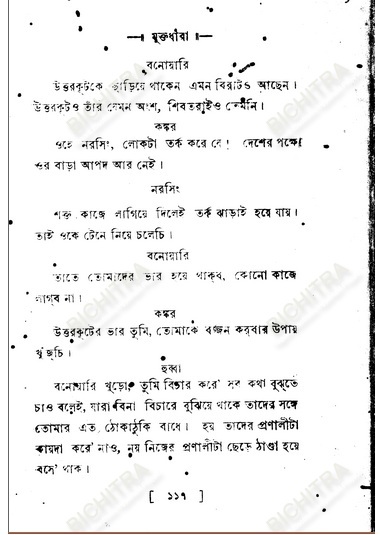 মুক্তধারা
বনোয়ারি
উত্তরকূটকে ছাড়িয়ে থাকেন এমন বিরাটও আছেন।
উত্তরকূটও তাঁর যেমন অংশ, শিবতরাইও তেমনি।
কঙ্কর
ওহে নরসিং, লোকটা তর্ক করে রে! দেশের পক্ষে
ওর বাড়া আপদ আর নেই।
নরসিং
শক্ত কাজে লাগিয়ে দিলেই তর্ক ঝাড়াই হয়ে যায়।
তাই ওকে টেনে নিয়ে চলেচি।
বনোয়ারি
তাতে তোমাদের ভার হয়ে থাক্‌ব, কোনো কাজে
লাগ্‌ব না।
কঙ্কর
উত্তরকূটের ভার তুমি, তোমাকে বর্জ্জন করবার উপায়
খুঁজ্‌চি।
হুব্বা
বনোয়ারি খুড়ো, তুমি বিচার করে' সব কথা বুঝ্‌তে
চাও বলেই, যারা বিনা বিচারে বুঝিয়ে থাকে তাদের সঙ্গে
তোমার এত ঠোকাঠুকি বাধে। হয় তাদের প্রণালীটা
কায়দা করে' নাও, নয় নিজের প্রণালীটা ছেড়ে ঠাণ্ডা হয়ে
বসে' থাক।
[ ১১৭ ]
BICHITRA